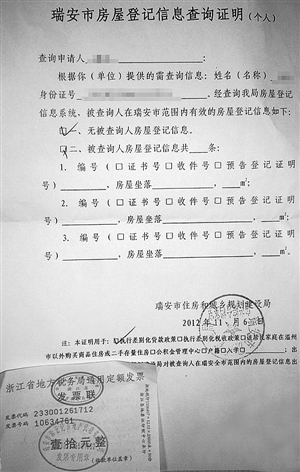 瑞安市房屋登记信息查询证明（个人）
查询申请人：
根据你（单位）提供的需查信息：姓名（名称）
身份证号，经查询我局房屋登记
信息系统、被查询人在瑞安市范围内有效的房屋登记信息如下：
一、无被查询人房屋登记信息。
□二、被查询人房屋登记信息共___条：
1. 编号（□证书号□收件号□预告登记证明
号）________，房屋坐落________，____㎡；
2. 编号（□证书号□收件号□预告登记证明
号）________，房屋坐落________，____㎡；
3. 编号（□证书号□收件号□预告登记证明
号）________，房屋坐落________，____㎡；
瑞安市住房和城乡规划建设局
2012年11月6日
注：本证明用于：□执行差别化贷款政策□执行差别化税收政策□该居民家庭在温州
市以外购买商品住房或二手存量住房□公积金管理中心□户籍□入学□
对被查询人在瑞安市范围内的房屋登
浙江省地方税务局通用定额发票
发票联
发票代码 233001261712
发票号码 10634761
壹拾元整
发票专用章
（收款单位盖章）